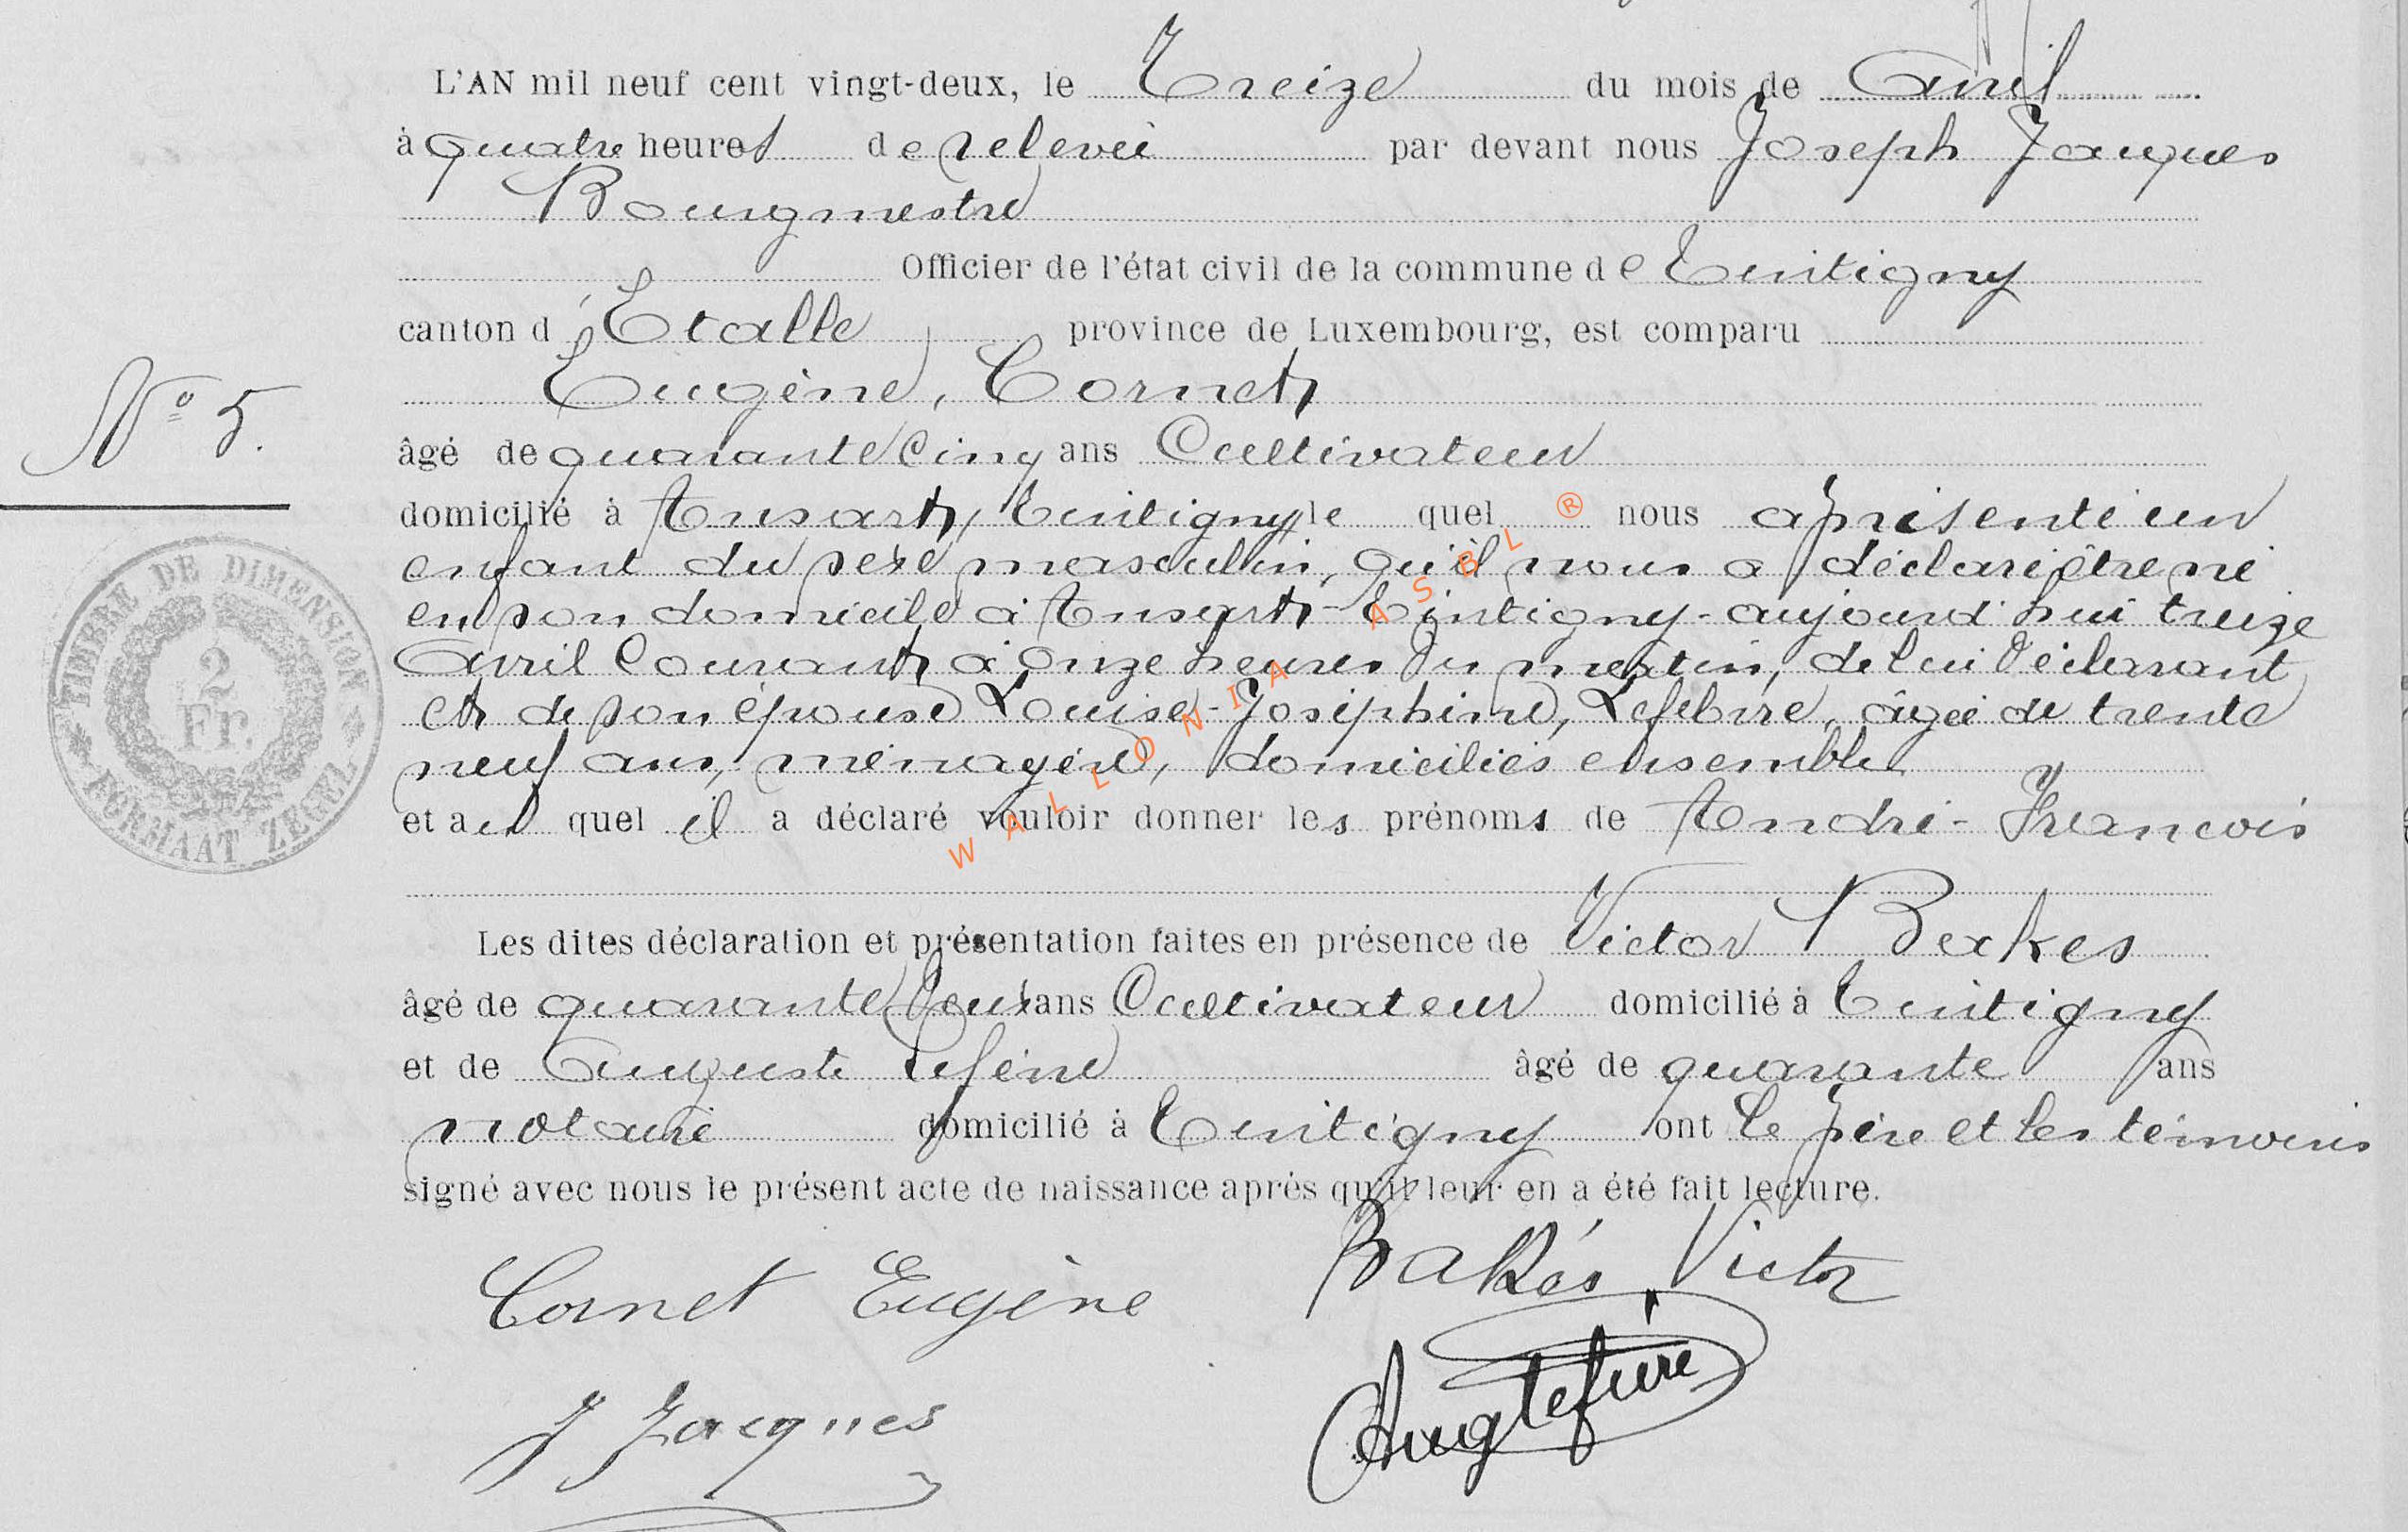 L'AN mil neuf cent vingt-deux, le Treize du mois de Avril
à quatre heures de relevée par devant nous Joseph Jacques
Bourgmestre
Officier de l'état civil de la commune de Tintigny
canton d'Etalle province de Luxembourg, est comparu
Eugène, Cornet
N° 5.
âgé de quarante cinq ans Cultivateur
domicilié à Ansart, Tintigny le quel nous a présenté un
enfant du sexe masculin, qu'il nous a déclaré être né
en son domicile à Ansart-Tintigny-aujourd'hui treize
Avril Courant à onze heures du matin, de lui déclarant
et de son épouse Louise-Joséphine, Lefebvre, âgée de trente
neuf ans, ménagère, domiciliés ensemble
et au quel il a déclaré vouloir donner les prénoms de André-Francois
Les dites déclaration et présentation faites en présence de Victor Backes
âgé de quarante deux ans Cultivateur domicilié à Tintigny
et de Auguste Lefèvre âgé de quarante ans
notaire domicilié à Tintigny ont le père et les témoins
signé avec nous le présent acte de naissance après qu'il leur en a été fait lecture.
Cornet Eugène
Bakés Victor
J Jacques
Aug Lefèvre
TIMBRE DE DIMENSION
2
Fr.
FORMAAT ZEGEL
WALLONIA ASBL ®